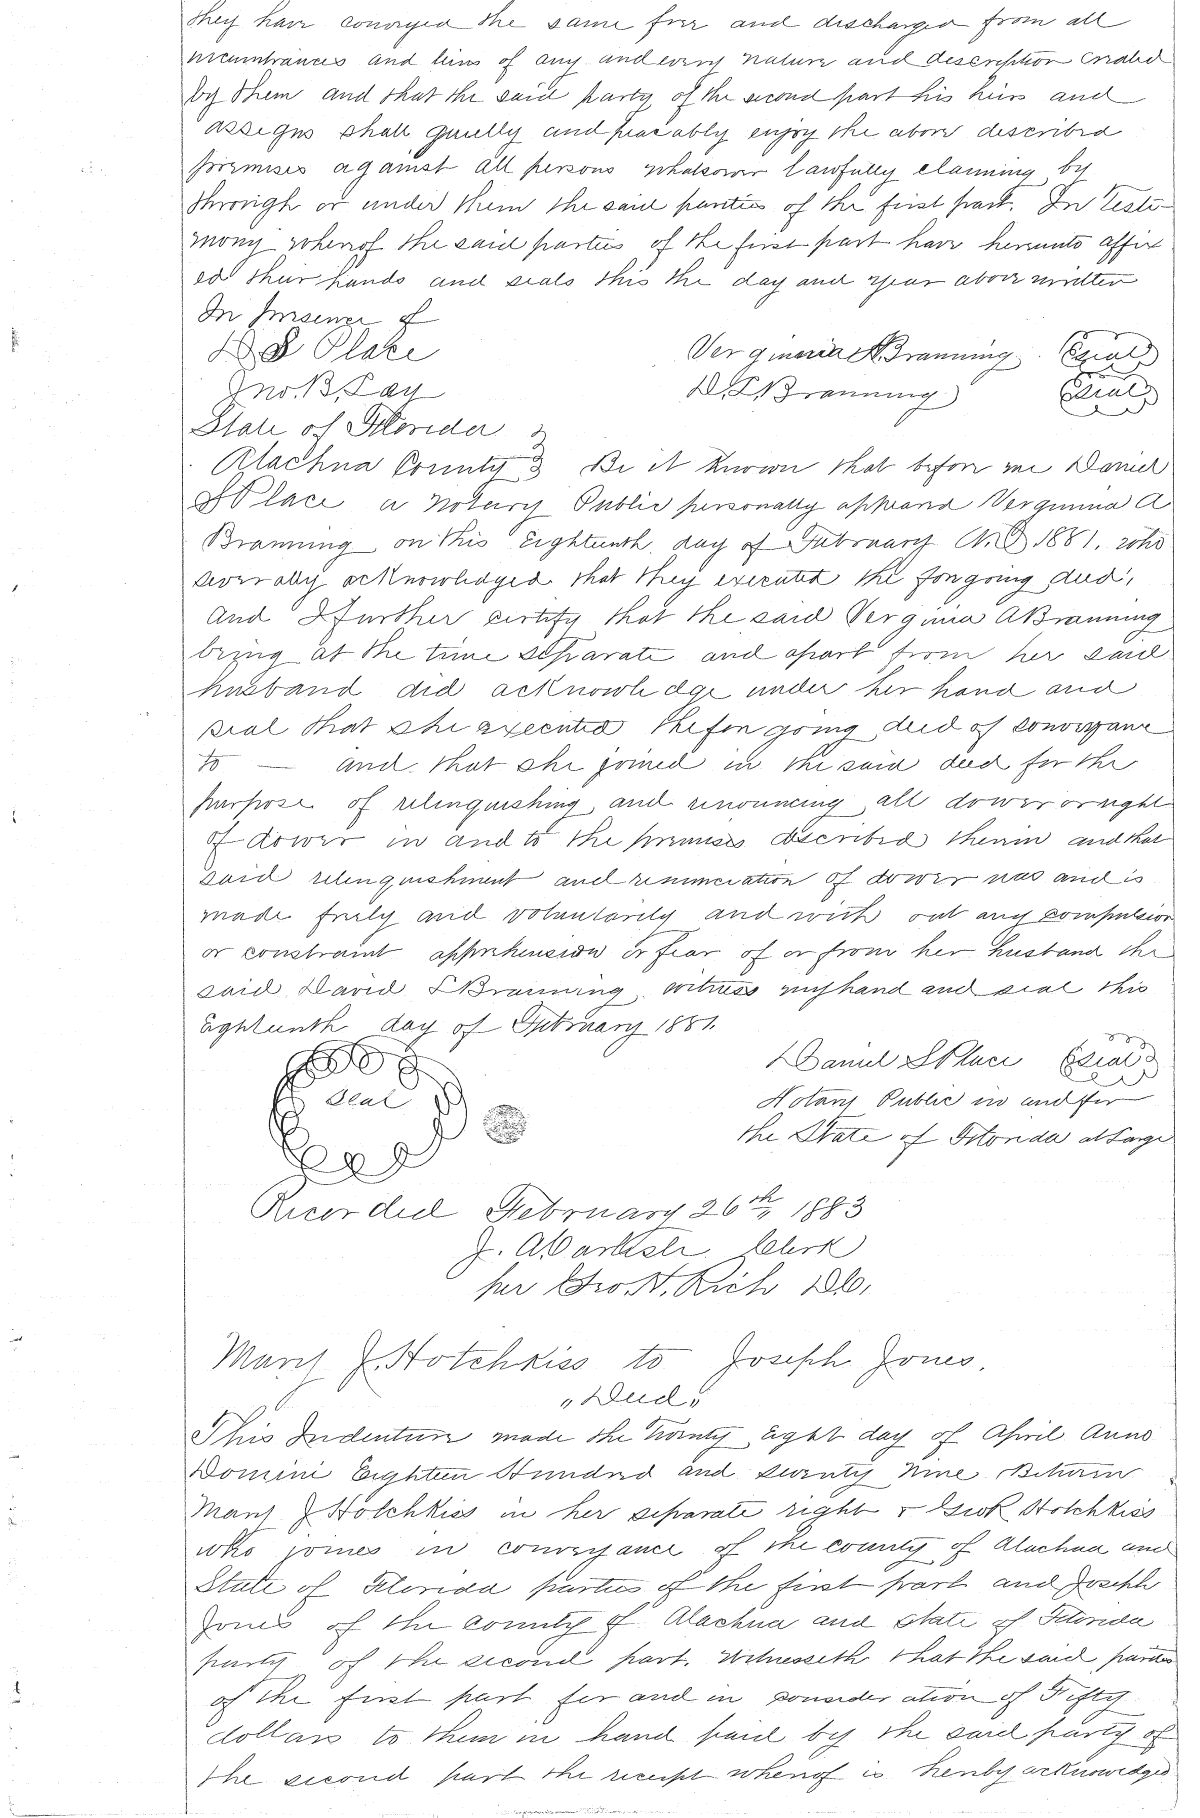 they have conveyed the same free and discharged from all
incumbrances and liens of any and every nature and description created
by them and that the said party of the second part his heirs and
assigns shall quietly and peacably enjoy the above described
premises against all persons whatsoever lawfully claiming by
through or under them the said parties of the first part. In Testi-
mony whereof the said parties of the first part have hereunto affix
ed their hands and seals this the day and year above written
In Presence of
D S Place Verginaria A. Branning (Seal)
Jno. B. Day D. L. Branning (Seal)
State of Florida }
Alachua County } Be it Known that before me Daniel
S Place a Notary Public personally appeard Verginina A
Branning on this Eighteenth day of February A.D 1881. who
severally acknowledged that they executed the foregoing deed,
And I further certify that the said Verginia A Branning
being at the time separate and apart from her said
husband did acknowledge under her hand and
seal that she executed the foregoing deed of conveyance
to — and that she joined in the said deed for the
purpose of relinquishing and renouncing all dower or right
of dower in and to the premises described therein and that
said relinquishment and renunciation of dower was and is
made freely and voluntarily and with out any compulsion
or constraint apprehension or fear of or from her husband the
said David L Branning. witness my hand and seal this
Eighteenth day of February 1881.
Daniel S Place (Seal)
Seal
Notary Public in and for
the State of Florida at Large
Recorded February 26th, 1883
J. A. Carlisle Clerk
per Geo. H. Rich D.C.
Mary J. Hotchkiss to Joseph Jones.
"Deed"
This Indenture made the Twenty Eight day of April Anno
Domini Eighteen Hundred and Seventy Nine Between
Mary J Hotchkiss in her separate right & Geo K Hotchkiss
who joines in conveyance of the county of Alachua and
State of Florida parties of the first part and Joseph
Jones of the county of Alachua and State of Florida
party of the second part. Witnesseth that the said parties
of the first part for and in consideration of Fifty
dollars to them in hand paid by the said party of
the second part the receipt whereof is hereby acknowledged